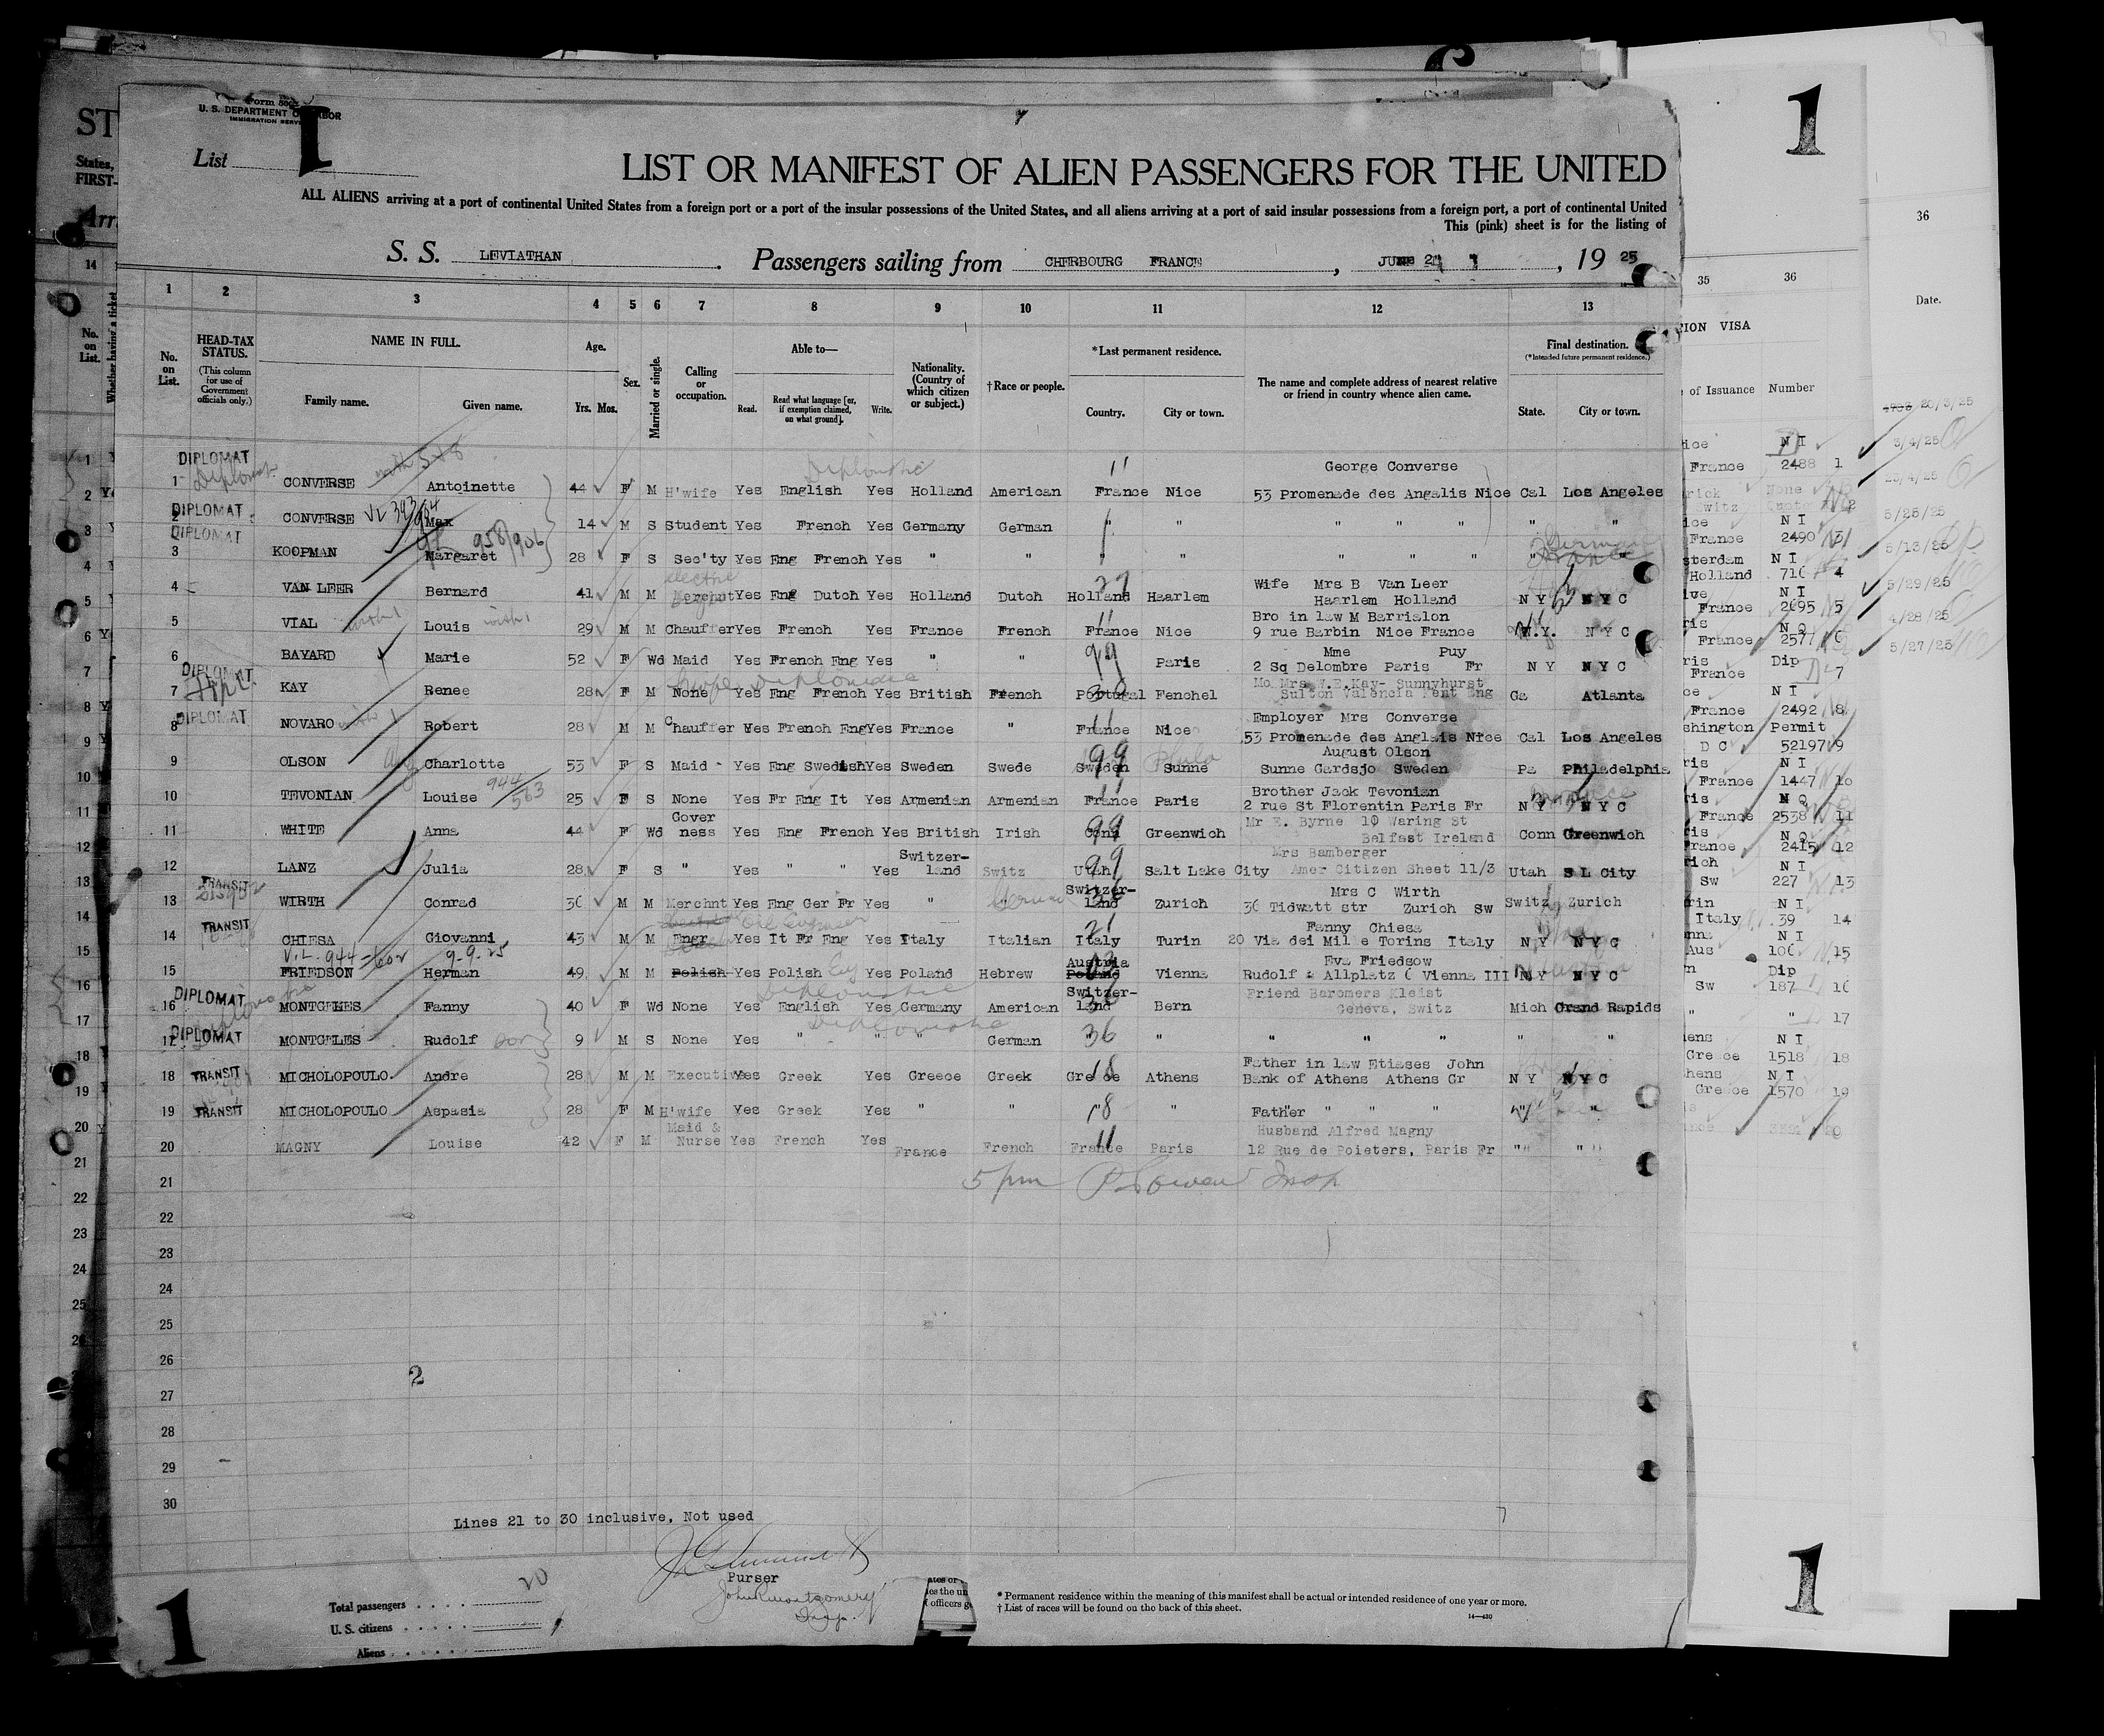 Form 500
U. S. DEPARTMENT OF LABOR
IMMIGRATION SERVICE
List 1
1
LIST OR MANIFEST OF ALIEN PASSENGERS FOR THE UNITED
ALL ALIENS arriving at a port of continental United States from a foreign port or a port of the insular possessions of the United States, and all aliens arriving at a port of said insular possessions from a foreign port, a port of continental United
This (pink) sheet is for the listing of
S. S. LEVIATHAN. Passengers sailing from CHERBOURG FRANCE, JUNE 2, 1925
1 2 3 4 5 6 7 8 9 10 11 12 13
No. on List.
HEAD-TAX STATUS.
(This column for use of Government officials only.)
NAME IN FULL.
Family name. Given name.
Age.
Yrs. Mos.
Sex.
Married or single.
Calling or occupation.
Able to—
Read. Read what language [or, if exemption claimed, on what ground]. Write.
Nationality. (Country of which citizen or subject.)
†Race or people.
*Last permanent residence.
Country. City or town.
The name and complete address of nearest relative or friend in country whence alien came.
Final destination.
(*Intended future permanent residence.)
State. City or town.
DIPLOMAT Diplomatic George Converse
1 CONVERSE Antoinette 44 F M H'wife Yes English Yes Holland American France Nice 53 Promenade des Angalis Nice Cal Los Angeles
DIPLOMAT
2 CONVERSE Max 14 M S Student Yes French Yes Germany German " " " " " " "
DIPLOMAT
3 KOOPMAN Margaret 958/906 28 F S Sec'ty Yes Eng French Yes " " " " " " " "
Wife Mrs B Van Leer
4 VAN LEER Bernard 41 M M Merchnt Yes Eng Dutch Yes Holland Dutch Holland Haarlem Haarlem Holland N Y N Y C
Bro in law M Barrialon
5 VIAL with 1 Louis with 1 29 M M Chauffer Yes French Yes France French France Nice 9 rue Barbin Nice France N.Y. N Y C
Mme Puy
6 BAYARD Marie 52 F Wd Maid Yes French Eng Yes " " Paris 2 Sq Delombre Paris Fr N Y N Y C
DIPLOMAT Mo Mrs W.E.Kay- Sunnyhurst
7 KAY Renee 28 F M None Yes Eng French Yes British French Portugal Fenchel Sutton Valencia Kent Eng Ga Atlanta
DIPLOMAT Employer Mrs Converse
8 NOVARO Robert 28 M M Chauffer Yes French Eng Yes France " France Nice 53 Promenade des Anglais Nice Cal Los Angeles
August Olson
9 OLSON Charlotte 53 F S Maid Yes Eng Swedish Yes Sweden Swede Sweden Sunne Sunne Gardsjo Sweden Pa Philadelphia
Brother Jack Tevonian
10 TEVONIAN Louise 944/563 25 F S None Yes Fr Eng It Yes Armenian Armenian France Paris 2 rue St Florentin Paris Fr N Y N Y C
Mr E. Byrne 10 Waring St
11 WHITE Anna 44 F Wd Governess Yes Eng French Yes British Irish Conn Greenwich Belfast Ireland Conn Greenwich
Mrs Bamberger
12 LANZ Julia 28 F S " Yes " " Yes Switzerland Switz Utah Salt Lake City Amer Citizen Sheet 11/3 Utah S L City
TRANSIT Mrs C Wirth
13 WIRTH Conrad 36 M M Merchnt Yes Eng Ger Fr Yes " " Switzerland Zurich 36 Tidwatt str Zurich Sw Switz Zurich
TRANSIT Fanny Chiesa
14 CHIESA Giovanni 43 M M Engr Yes It Fr Eng Yes Italy Italian Italy Turin 20 Via dei Mille Torins Italy N Y N Y C
V.L. 944-602 9-9-25
Austria Eva Friedsow
15 FRIEDSON Herman 49 M M Polish Yes Polish Eng Yes Poland Hebrew Poland Vienna Rudolf Allplatz 6 Vienna III N Y N Y C
DIPLOMAT Friend Baromers Kleist
16 MONTGELES Fanny 40 F Wd None Yes English Yes Germany American Switzerland Bern Geneva, Switz Mich Grand Rapids
DIPLOMAT
17 MONTGELES Rudolf son 9 M S None Yes " " " German 36 " " " " " "
Father in law Etiases John
18 TRANSIT MICHOLOPOULO Andre 28 M M Executive Yes Greek Yes Greece Greek Greece Athens Bank of Athens Athens Gr N Y N Y C
19 TRANSIT MICHOLOPOULO Aspasia 28 F M H'wife Yes Greek Yes " " 18 " Father " " " " "
Husband Alfred Magny
20 MAGNY Louise 42 F M Maid & Nurse Yes French Yes France French France Paris 12 Rue de Poieters, Paris Fr " "
21 5 pm Insp
22
23
24
25
26
27
28
29
30
2
Lines 21 to 30 inclusive, Not used
Purser
John R Montgomery
Insp.
Total passengers 20
U. S. citizens
Aliens
* Permanent residence within the meaning of this manifest shall be actual or intended residence of one year or more.
† List of races will be found on the back of this sheet.
14—430
1
ST
States,
FIRST-
Arr
14
No. on List.
Whether having a ticket
1
36
35 36
Date.
ION VISA
of Issuance Number
20/3/25
3/4/25
23/4/25
5/25/25
5/13/25
5/29/25
4/28/25
5/27/25
N I
France 2488 1
None
Switz Quota 2
N I
France 2490 3
sterdam N I
Holland 716 4
N I
France 2695 5
N Q
France 2577 6
Dip
France 7
N I
France 2492 8
shington Permit
D C 52197 9
N I
France 1447 10
N Q
France 2538 11
N Q
France 2415 12
N I
Sw 227 13
N I
Italy 39 14
N I
Aus 106 15
Dip
Sw 187 16
" " 17
N I
Greece 1518 18
N I
Greece 1570 19
20
1